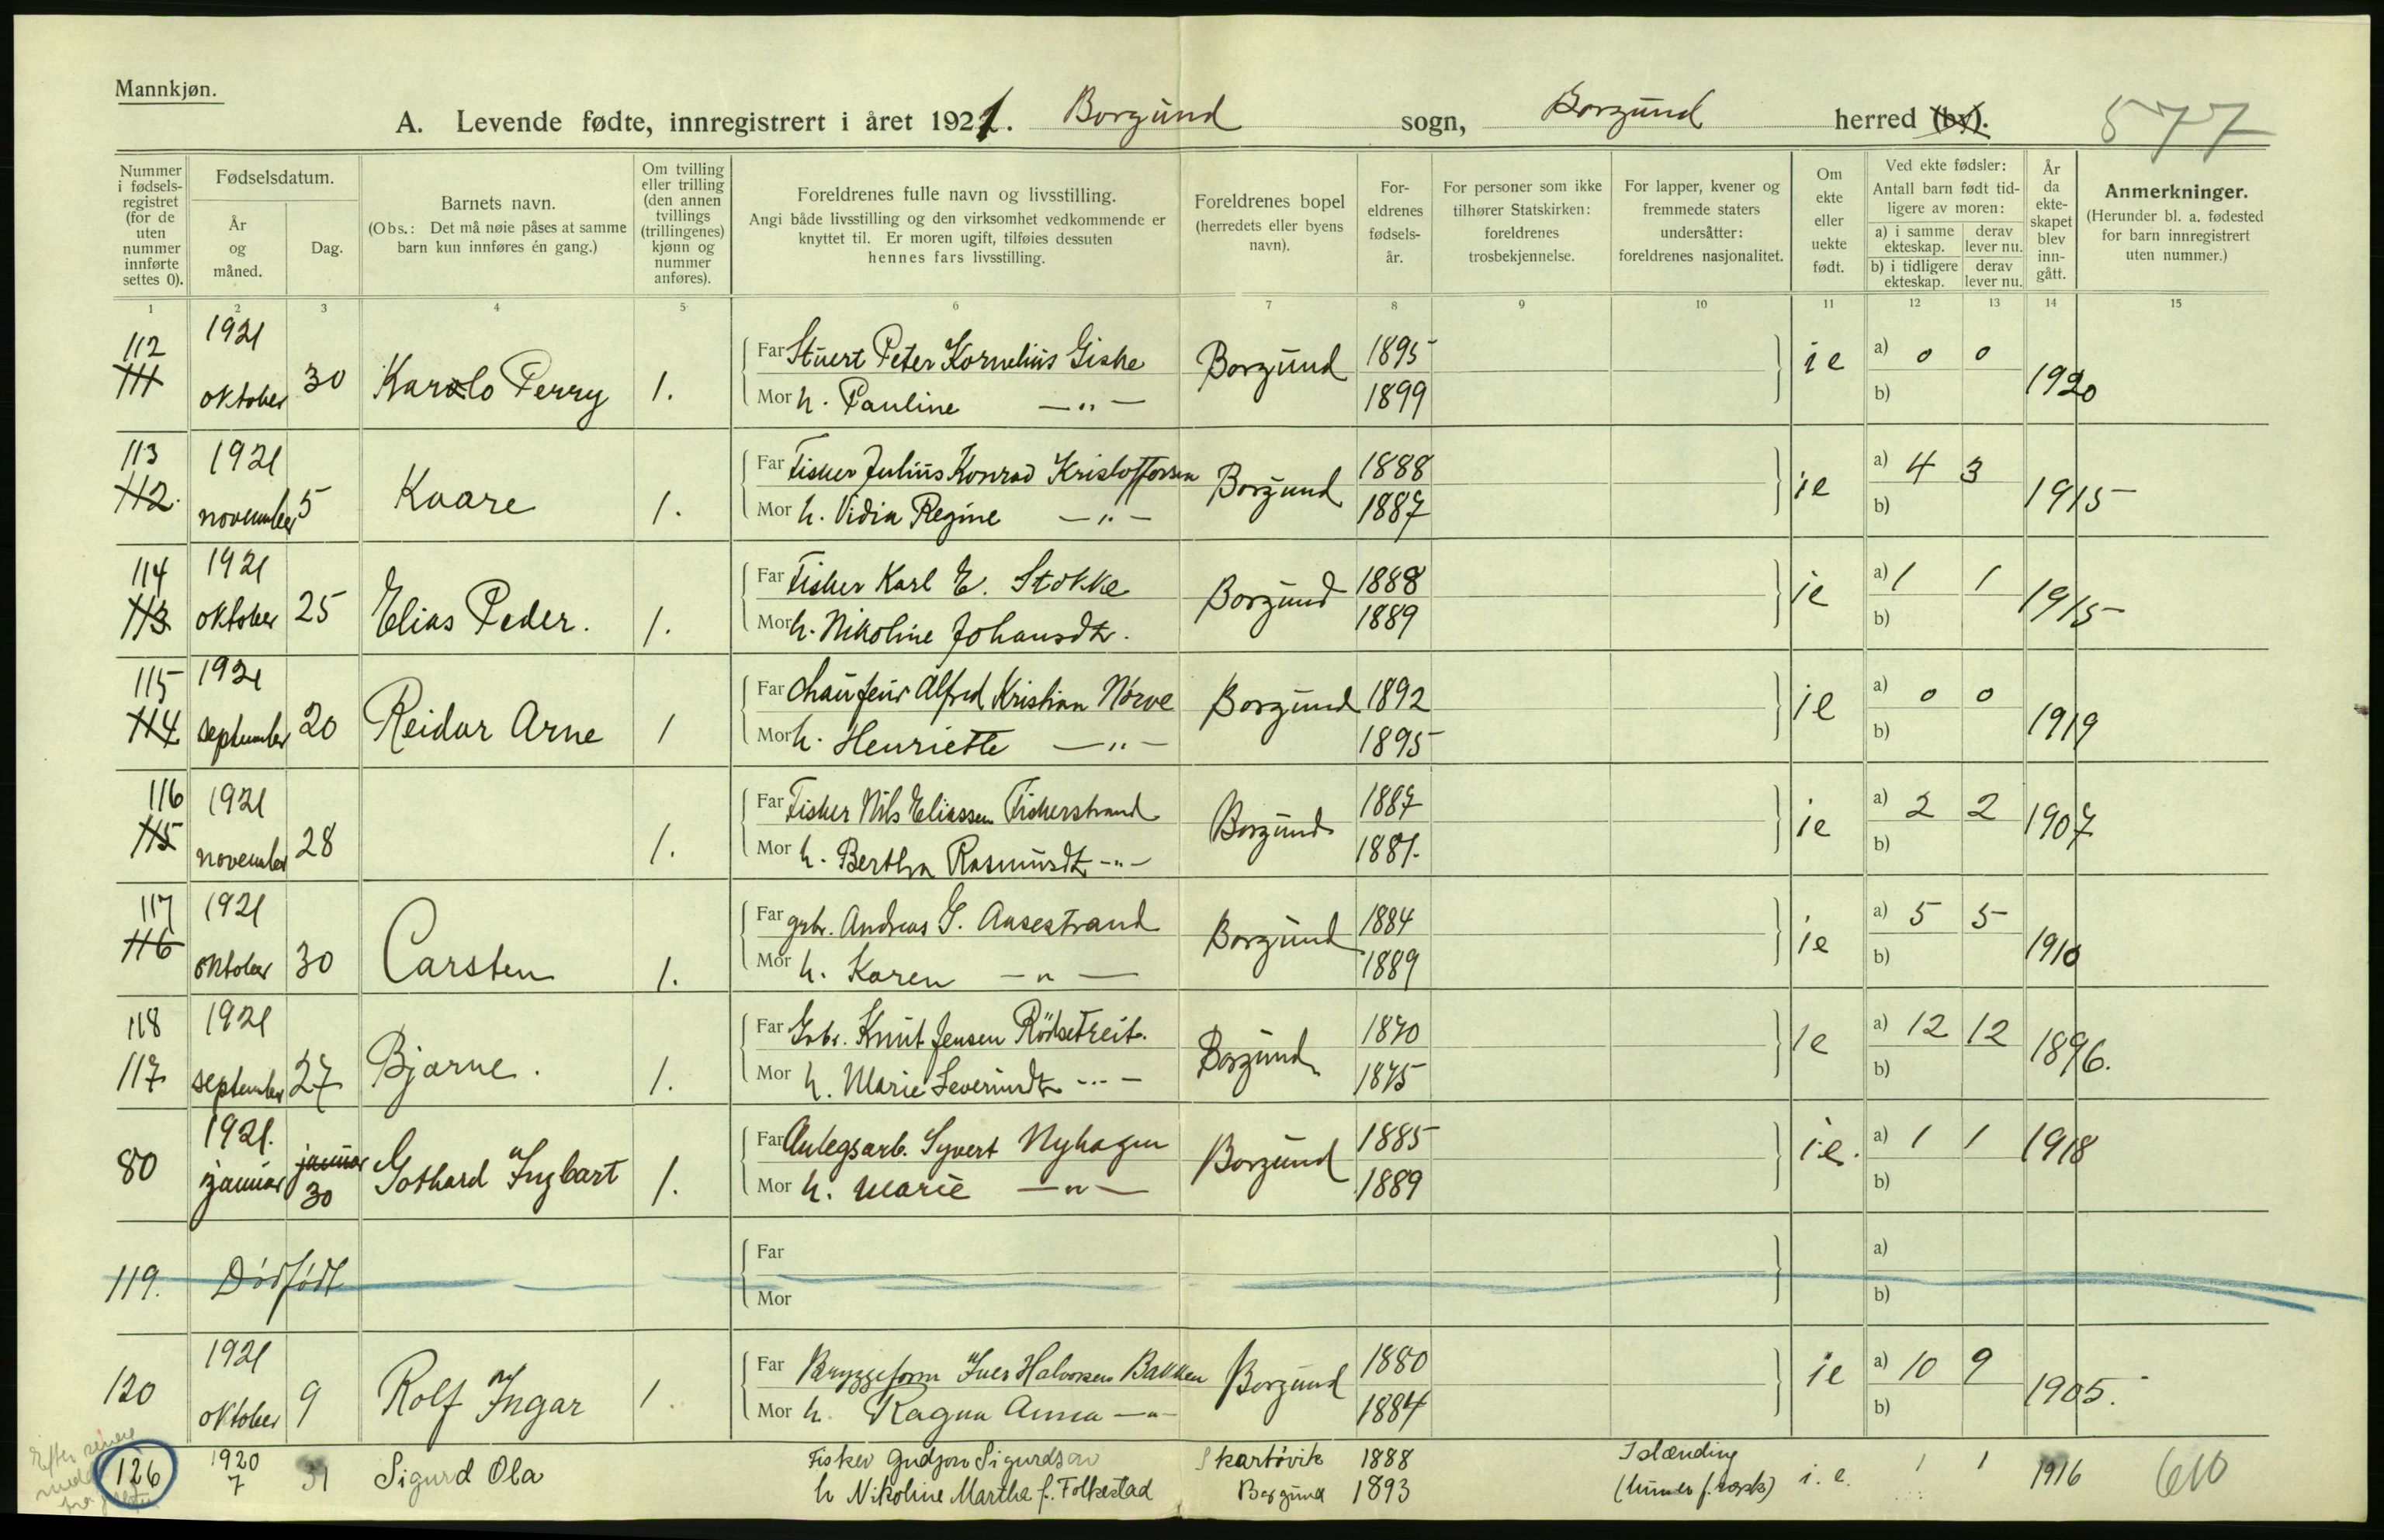 Mannkjøn.
A. Levende fødte, innregistrert i året 1921. Borgund sogn, Borgund herred (by). 577
Nummer i fødsels-registret (for de uten nummer innførte settes 0).
Fødselsdatum.
År og måned.
Dag.
Barnets navn.
(Obs.: Det må nøie påses at samme barn kun innføres én gang.)
Om tvilling eller trilling (den annen tvillings (trillingenes) kjønn og nummer anføres).
Foreldrenes fulle navn og livsstilling.
Angi både livsstilling og den virksomhet vedkommende er knyttet til. Er moren ugift, tilføies dessuten hennes fars livsstilling.
Foreldrenes bopel (herredets eller byens navn).
For-eldrenes fødsels-år.
For personer som ikke tilhører Statskirken: foreldrenes trosbekjennelse.
For lapper, kvener og fremmede staters undersåtter: foreldrenes nasjonalitet.
Om ekte eller uekte født.
Ved ekte fødsler:
Antall barn født tid-ligere av moren:
a) i samme ekteskap. derav lever nu.
b) i tidligere ekteskap. derav lever nu.
År da ekte-skapet blev inn-gått.
Anmerkninger.
(Herunder bl. a. fødested for barn innregistrert uten nummer.)
1 2 3 4 5 6 7 8 9 10 11 12 13 14 15
112 111 1921 oktober 30 Karolo Perry 1. Far Stuert Peter Kornelius Giske Borgund 1895 ie a) 0 0 1920
Mor h. Pauline —"— 1899 b)
113 112. 1921 november 5 Kaare 1. Far Fisker Julius Konrad Kristoffersen Borgund 1888 ie a) 4 3 1915
Mor h. Vidia Regine —"— 1887 b)
114 113 1921 oktober 25 Elias Peder. 1. Far Fisker Karl E. Stokke Borgund 1888 ie a) 1 1 1915
Mor h. Nikoline Johansdtr. 1889 b)
115 114 1921 september 20 Reidar Arne 1 Far Chaufeur Alfred Kristian Nørve Borgund 1892 ie a) 0 0 1919
Mor h. Henriette —"— 1895 b)
116 115 1921 november 28 1. Far Fisker Nils Eliassen Fiskerstrand Borgund 1887 ie a) 2 2 1907
Mor h. Bertha Rasmusdtr —"— 1881. b)
117 116 1921 oktober 30 Carsten 1. Far gbr. Andreas G. Aasestrand Borgund 1884 ie a) 5 5 1910
Mor h. Karen —"— 1889 b)
118 117 1921 september 27 Bjarne. 1. Far Gbr. Knut Jensen Rödsetreit. Borgund 1870 ie a) 12 12 1896.
Mor h. Marie Severinsdtr —"— 1875 b)
80 1921. januar januar 30 Gothard Ingbart 1. Far Anlegsarb. Syvert Nyhagen Borgund 1885 ie. a) 1 1 1918
Mor h. Marie —"— 1889 b)
119. Dødfødt Far a)
Mor b)
120 1921 oktober 9 Rolf Ingar 1. Far Bryggeform Iver Halvorsen Bakken Borgund 1880 ie a) 10 9 1905.
Mor h. Ragna Anna —"— 1884 b)
126 1920 7 31 Sigurd Ola Fisker Gudjon Sigurdson Skartøvik 1888 Islænding i. e. 1 1 1916 610
h Nikoline Martha f. Folkestad Borgund 1893
Efter